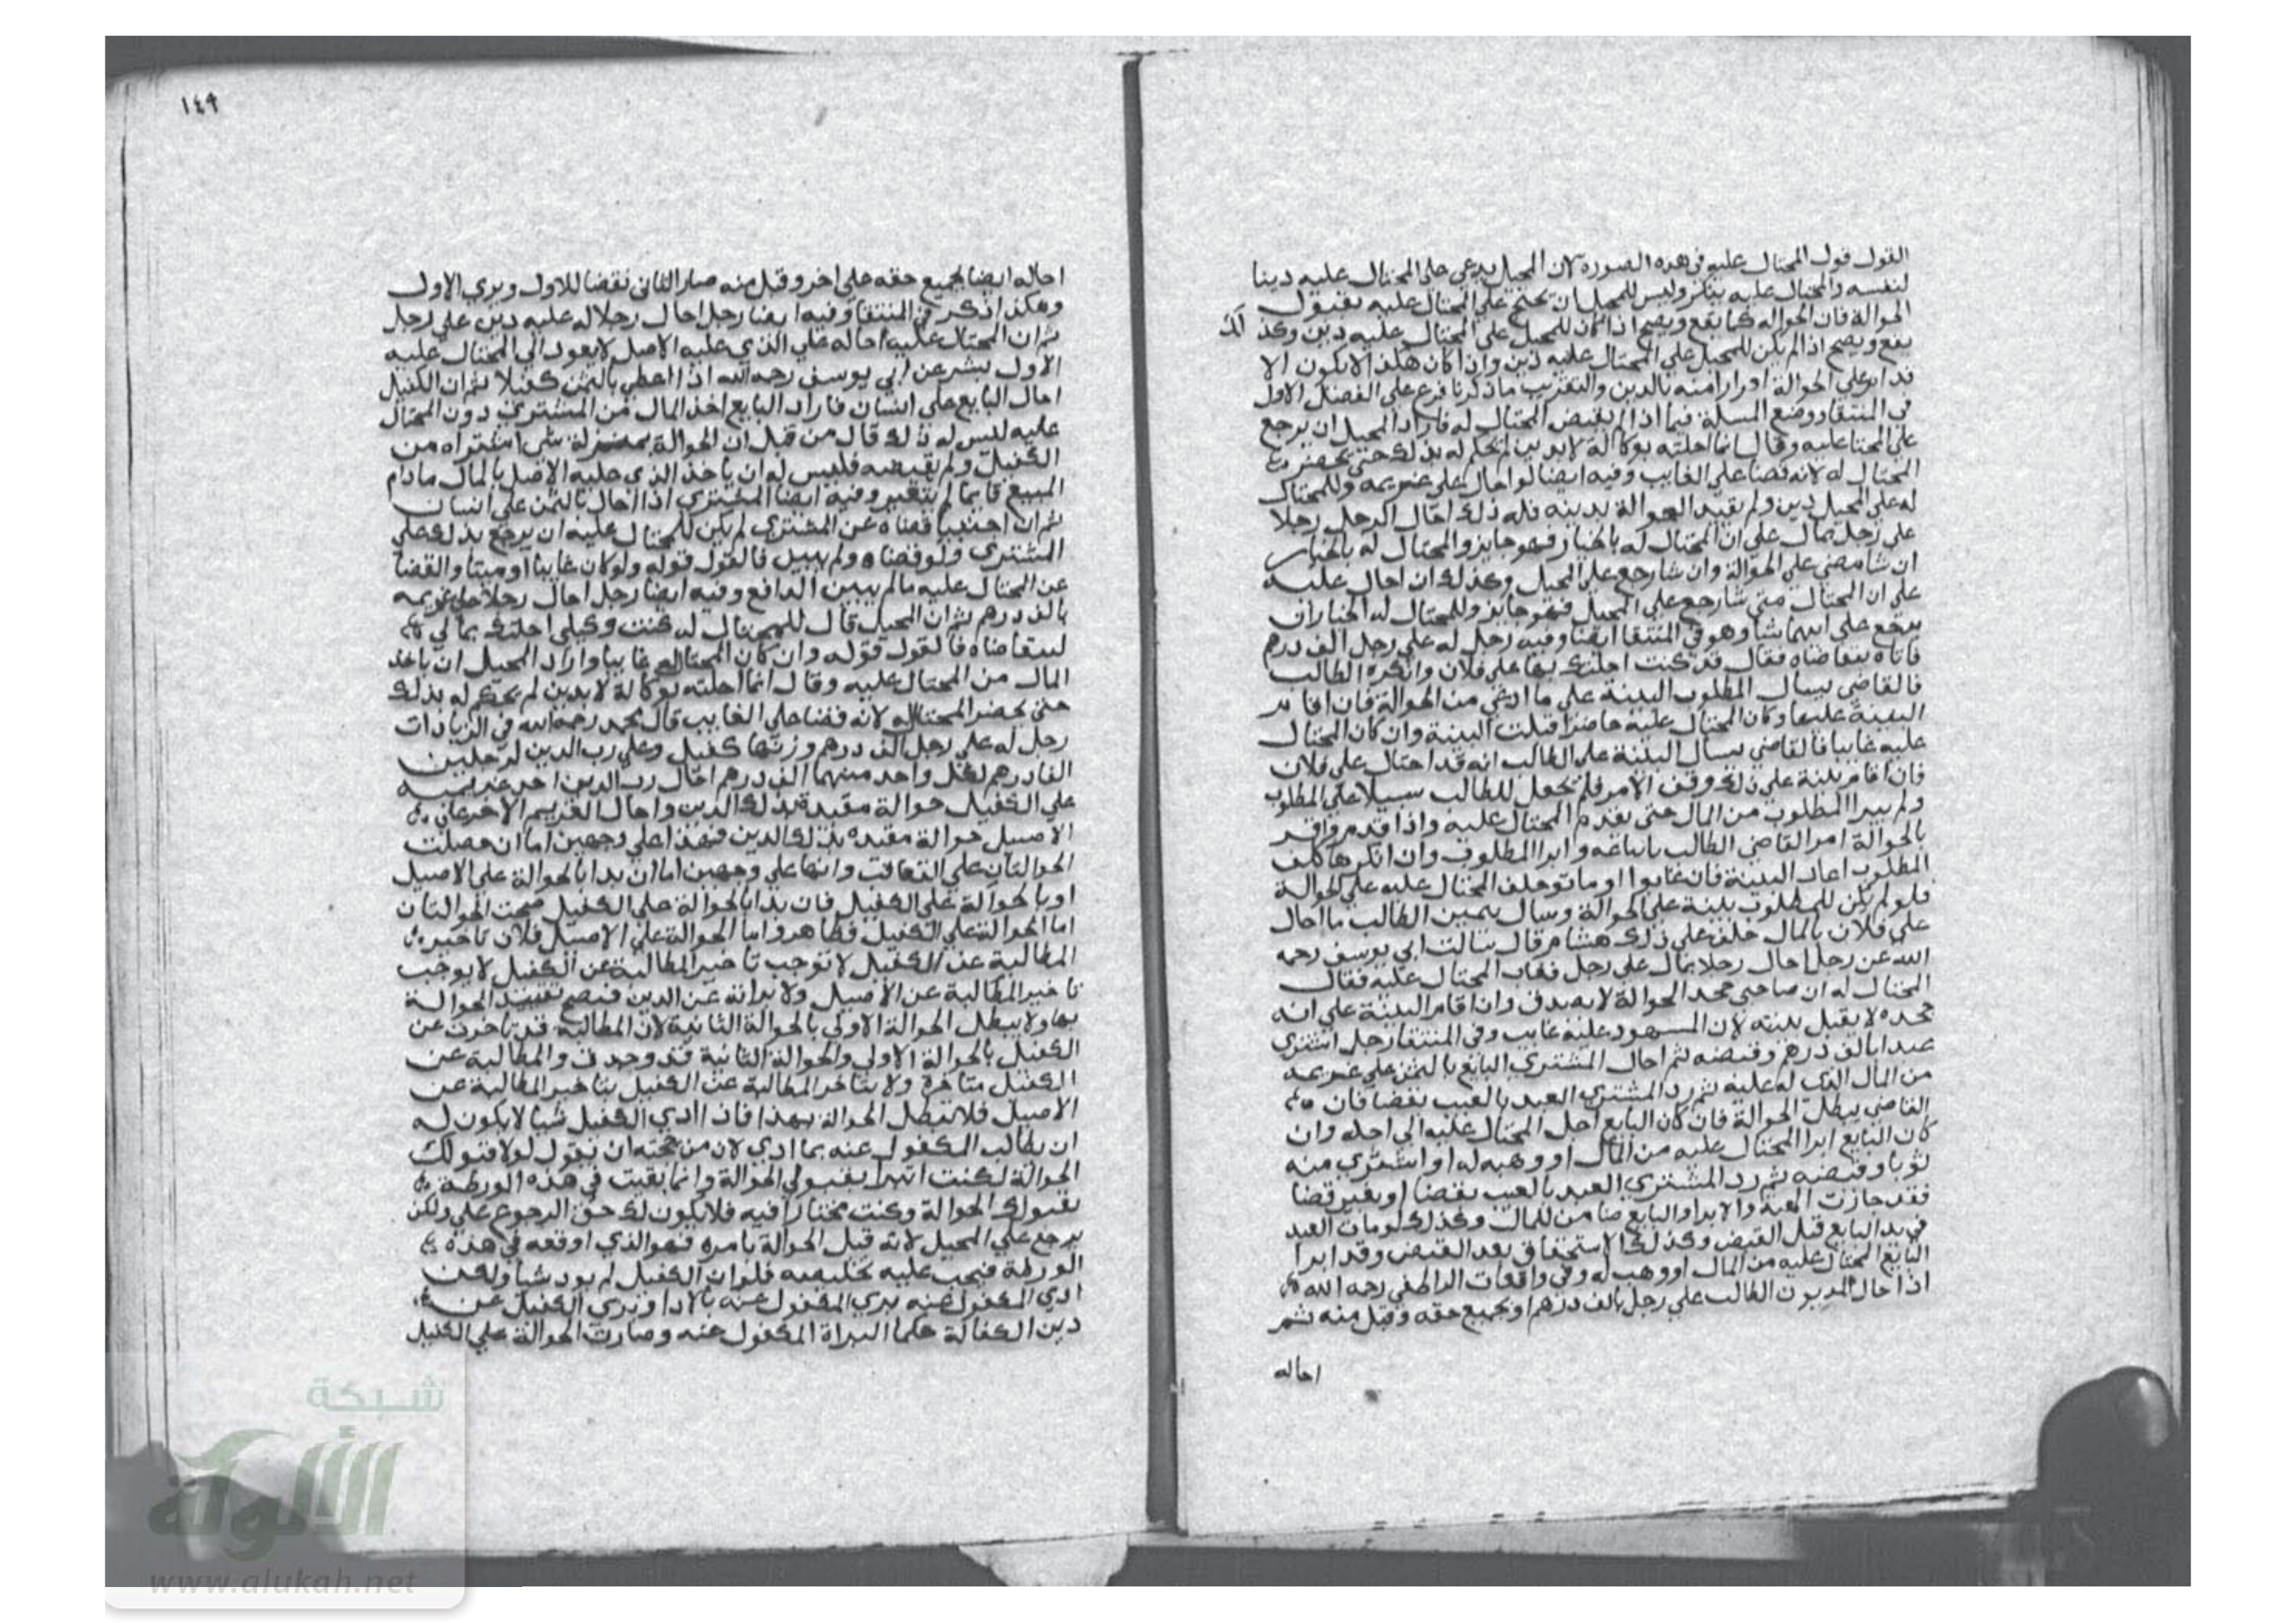 القول قول المحتال عليه في هذه الصورة لان المحيل يدعي على المحتال عليه دينا
لنفسه والمحتال عليه ينكر وليس للمحيل ان يحتج على المحتال عليه بقبول
الحوالة فان الحواله كما يقع ويصح اذا كان للمحيل على المحتال عليه دين وكذ لك
يقع ويصح اذا لم يكن للمحيل على المحتال عليه دين واذا كان هكذا لا يكون الا
قدام على الحوالة اقرارا منه بالدين والتقريب ما ذكرنا فرع على الفصل الاول
في المنتقا ووضع المسلة فيما اذا لم يقبض المحتال له فاراد المحيل ان يرجع
على المحتا عليه وقال انما احلته بوكالة لا بدين لم يحكم له بذلك حتى يحضر
المحتال له لانه قضا على الغايب وفيه ايضا لو احال على غريمه وللمحتال
له على المحيل دين ولم يقيد الحوالة بدينه فله ذلك احال الرجل رجلا
على رجل بمال على ان المحتال له بالخيار فهو جايز والمحتال له بالخيار
ان شا مضى على الحوالة وان شا رجع على المحيل وكذلك ان احال عليه
على ان المحتال متى شا رجع على المحيل فهو جايز وللمحتال له الخيار ان
يرجع على ايهما شا وهو في المنتقا ايضا وفيه رجل له على رجل الف درهم
فاتاه يتقاضاه فقال قد كنت احلتك بها على فلان وانكره الطالب
فالقاضي يسال المطلوب البينة على ما ادعى من الحوالة فان اقام
البينة عليها وكان المحتال عليه حاضرا قبلت البينة وان كان المحتال
عليه غايبا فالقاضي يسال البينة على الطالب انه قد احتال على فلان
فان اقام بينة على ذلك وقف الامر فلم يجعل للطالب سبيلا على المطلوب
ولم يبرا المطلوب من المال حتى يقدم المحتال عليه واذا قدم واقر
بالحوالة امر القاضي الطالب باتباعه وابرا المطلوب وان انكرها كلف
المطلوب اعاد البينة فان غابوا او ماتوا حلف المحتال عليه على الحوالة
فلو لم يكن للمطلوب بينة على الحوالة وسال يمين الطالب ما احال
على فلان بالمال حلف على ذلك هشام قال سالت ابي يوسف رحمه
الله عن رجل احال رجلا بمال على رجل فغاب المحتال عليه فقال
المحتال له ان صاحبي جحد الحوالة لا يصدق وان اقام البينة على انه
جحده لا يقبل بينته لان المشهود عليه غايب وفي المنتقا رجل اشترى
عبدا بالف درهم وقبضه ثم احال المشتري البايع بالثمن على غريمه
من المال الذي له عليه ثم رد المشتري العبد بالعيب بقضا فان
القاضي يبطل الحوالة فان كان البايع اجل المحتال عليه الى اجله وان
كان البايع ابرا المحتال عليه من المال او وهبه له او اشترى منه
ثوبا وقبضه ثم رد المشتري العبد بالعيب بقضا او بغير قضا
فقد جازت الهبة والابرا والبايع ضامن للمال وكذلك لو مات العبد
في يد البايع قبل القبض وكذلك الاستحقاق بعد القبض وقد ابرا
البايع المحتال عليه من المال او وهب له وفي واقعات الناطفي رحمه الله
اذا احال المديون الطالب على رجل بالف درهم او بجميع حقه وقبل منه ثم
احاله
١٤٩
احاله ايضا بجميع حقه على اخر وقبل منه صار الثاني نقضا للاول وبري الاول
وهكذا ذكر في المنتقا وفيه ايضا رجل احال رجلا له عليه دين على رجل
ثم ان المحتال عليه احاله على الذي عليه الاصل لا يعود الى المحتال عليه
الاول بشر عن ابي يوسف رحمه الله اذا اعطى بالثمن كفيلا ثم ان الكفيل
احال البايع على انسان فاراد البايع اخذ المال من المشتري دون المحتال
عليه ليس له ذلك قال من قبل ان الحوالة بمنزلة شي اشتراه من
الكفيل ولم يقبضه فليس له ان ياخذ الذي عليه الاصل بالمال ما دام
المبيع قايما لم يتغير وفيه ايضا المشتري اذا احال بالثمن على انسان
ثم ان اجنبيا قضاه عن المشتري لم يكن للمحتال عليه ان يرجع بذلك على
المشتري ولو قضاه ولم يبين فالقول قوله ولو كان غايبا او ميتا والقضا
عن المحتال عليه ما لم يبين الدافع وفيه ايضا رجل احال رجلا على غريمه
بالف درهم ثم ان المحيل قال للمحتال له كنت وكيلي احلتك بمالي
لتتقاضاه فالقول قوله وان كان المحتاله غايبا واراد المحيل ان ياخذ
المال من المحتال عليه وقال انما احلته بوكالة لا بدين لم يحكم له بذلك
حتى يحضر المحتاله لانه قضا على الغايب قال محمد رحمه الله في الزيادات
رجل له على رجل الف درهم وزنها كفيل وعلى رب الدين لرجلين
الفا درهم لكل واحد منهما الف درهم احال رب الدين احد غريميه
على الكفيل حوالة مقيدة بذلك الدين واحال الغريم الاخر على
الاصيل حوالة مقيده بذلك الدين فهذا على وجهين اما ان حصلت
الحوالتان على التعاقب وانها على وجهين اما ان بدا بالحوالة على الاصيل
او بالحوالة على الكفيل فان بدا بالحوالة على الكفيل صحت الحوالتان
اما الحوالة على الكفيل فظاهر واما الحوالة على الاصيل فلان تاخير
المطالبة عن الكفيل لا توجب تاخير المطالبة عن الكفيل لا يوجب
تاخير المطالبة عن الاصيل ولا براته عن الدين فيصح تقييد الحوالة
بها ولا يبطل الحوالة الاولى بالحوالة الثانية لان المطالبة قد تاخرت عن
الكفيل بالحوالة الاولى والحوالة الثانية قد وجدت والمطالبة عن
الكفيل متاخرة ولا يتاخر المطالبة عن الكفيل بتاخير المطالبة عن
الاصيل فلا تبطل الحوالة بهذا فاذا ادي الكفيل شيا لا يكون له
ان يطالب المكفول عنه بما ادي لان من حجته ان يقول لولا قبولك
الحوالة لكنت ابرا بقبولي الحوالة وانما بقيت في هذه الورطة
بقبولك الحوالة وكنت مختارا فيه فلا يكون لك حق الرجوع علي ولكن
يرجع على المحيل لانه قبل الحوالة بامره فهو الذي اوقعه في هذه
الورطة فيجب عليه تخليصه فلو ان الكفيل لم يود شيا ولكن
ادى المكفول عنه بري المكفول عنه بالادا وبري الكفيل عن
دين الكفالة حكما لبراة المكفول عنه وصارت الحوالة على الكفيل
شبكة
الألوكة
www.alukah.net